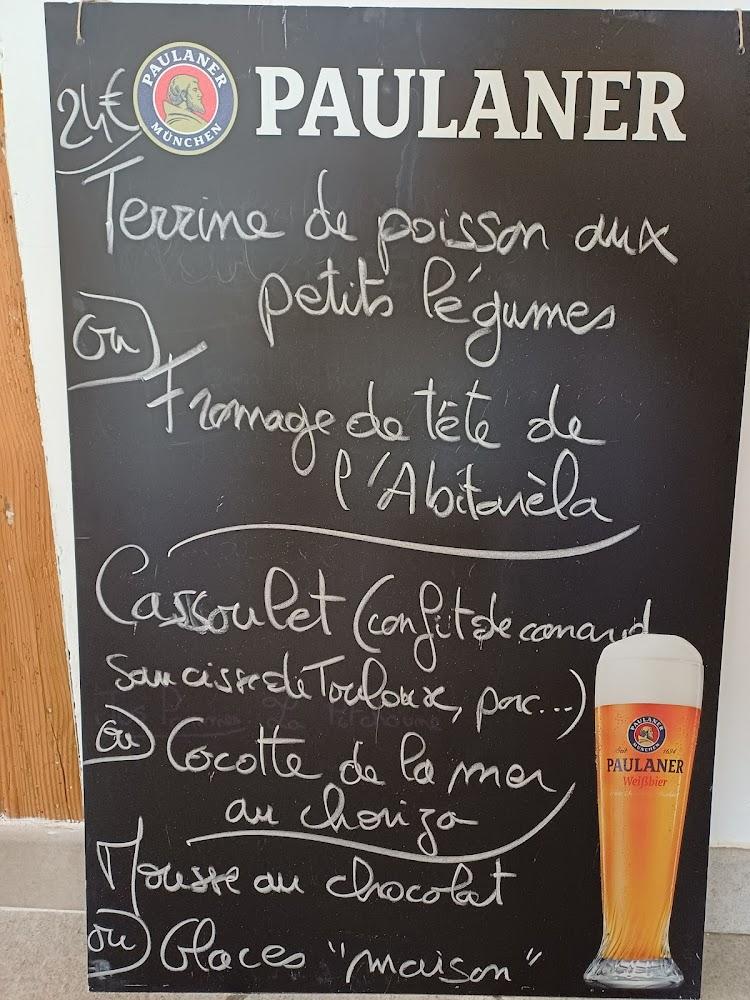 24€ PAULANER MÜNCHEN PAULANER
Terrine de poisson aux
petits légumes
ou
Fromage de tête de
l'Abitarèla
Cassoulet (confit de canard
saucisse de Toulouse, porc...)
ou Cocotte de la mer
au chorizo
Mousse au chocolat
ou Glaces "maison"
PAULANER
MÜNCHEN
Seit 1634
PAULANER
Weißbier